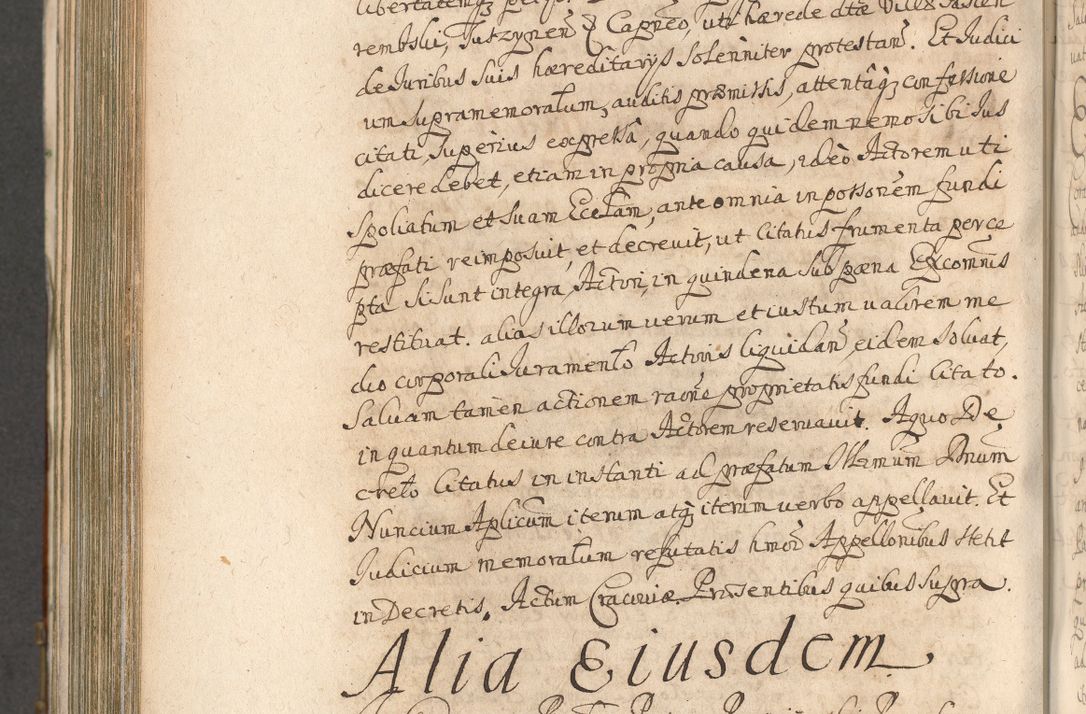 rembskij, Juszczynen & Capneo, uti hærede dtæ Villæ Jasien
de Juribus suis hæreditarijs solenniter protestan. Et Judici
um supramemoratum, auditis præmissis, attentâq; confessione
citati, superius expressâ, quando quidem nemo sibi Jus
dicere debet, etiam in propria causa, ideò Actorem uti
spoliatum et suam Ecclam, ante omnia in possonem fundi
præfati reimposuit, et decrevit, ut Citatus frumenta perce
pta si sunt integra, Actori, in quindena sub pœna Excomnis
restituat. alias illorum uerum et iustum ualorem me
dio corporali Juramento Actoris liquidan, eidem soluat,
Saluam tamen actionem raõne proprietatis fundi Citato.
in quantum de iure contra Actorem reseruauit. A quo De
creto Citatus in instanti ad præfatum Illmum Dnum
Nuncium Aplicum iterum atq; iterum uerbo appellauit. Et
Judicium memoratum refutatis hmoi Appellonibus stetit
in Decretis. Actum Cracouiæ. Præsentibus quibus supra.
Alia Eiusdem